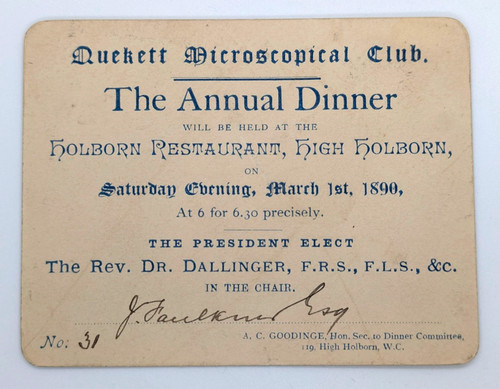 Quekett Microscopical Club.
The Annual Dinner
WILL BE HELD AT THE
HOLBORN RESTAURANT, HIGH HOLBORN,
ON
Saturday Evening, March 1st, 1890,
At 6 for 6.30 precisely.
THE PRESIDENT ELECT
The Rev. DR. DALLINGER, F.R.S., F.L.S., &c.
IN THE CHAIR.
J. Faulkner Esq
No: 31
A. C. GOODINGE, Hon. Sec. to Dinner Committee,
119, High Holborn, W.C.